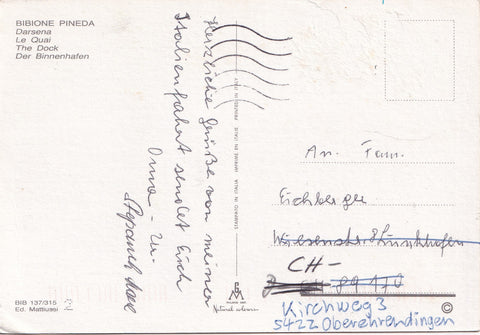 BIBIONE PINEDA
Darsena
Le Quai
The Dock
Der Binnenhafen
Herzliche Grüße von meiner
Italienfahrt sendet Euch
Oma - u.
STAMPATO IN ITALIA IMPRIMÉ EN ITALIE PRINTED IN ITALY
An Fam.
Eichberger
CH-
Kirchweg 3
5422 Oberehrendingen
BIB 137/315
Ed. Mattiussi
2
©